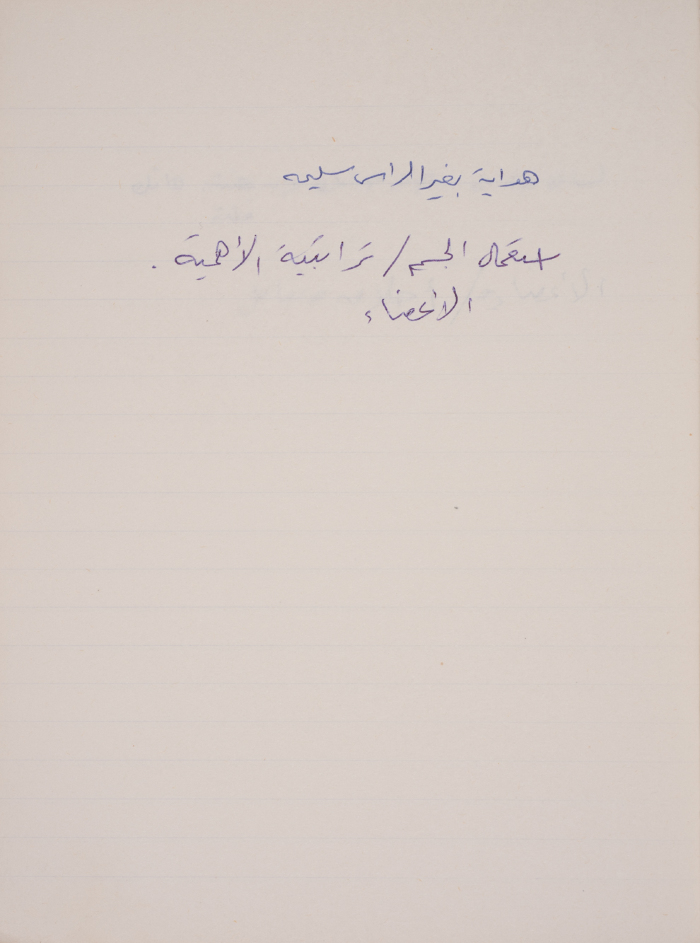 هداية بغير الراس سليمه
استعمال الجسم / تراتبية الأهمية .
الأعضاء